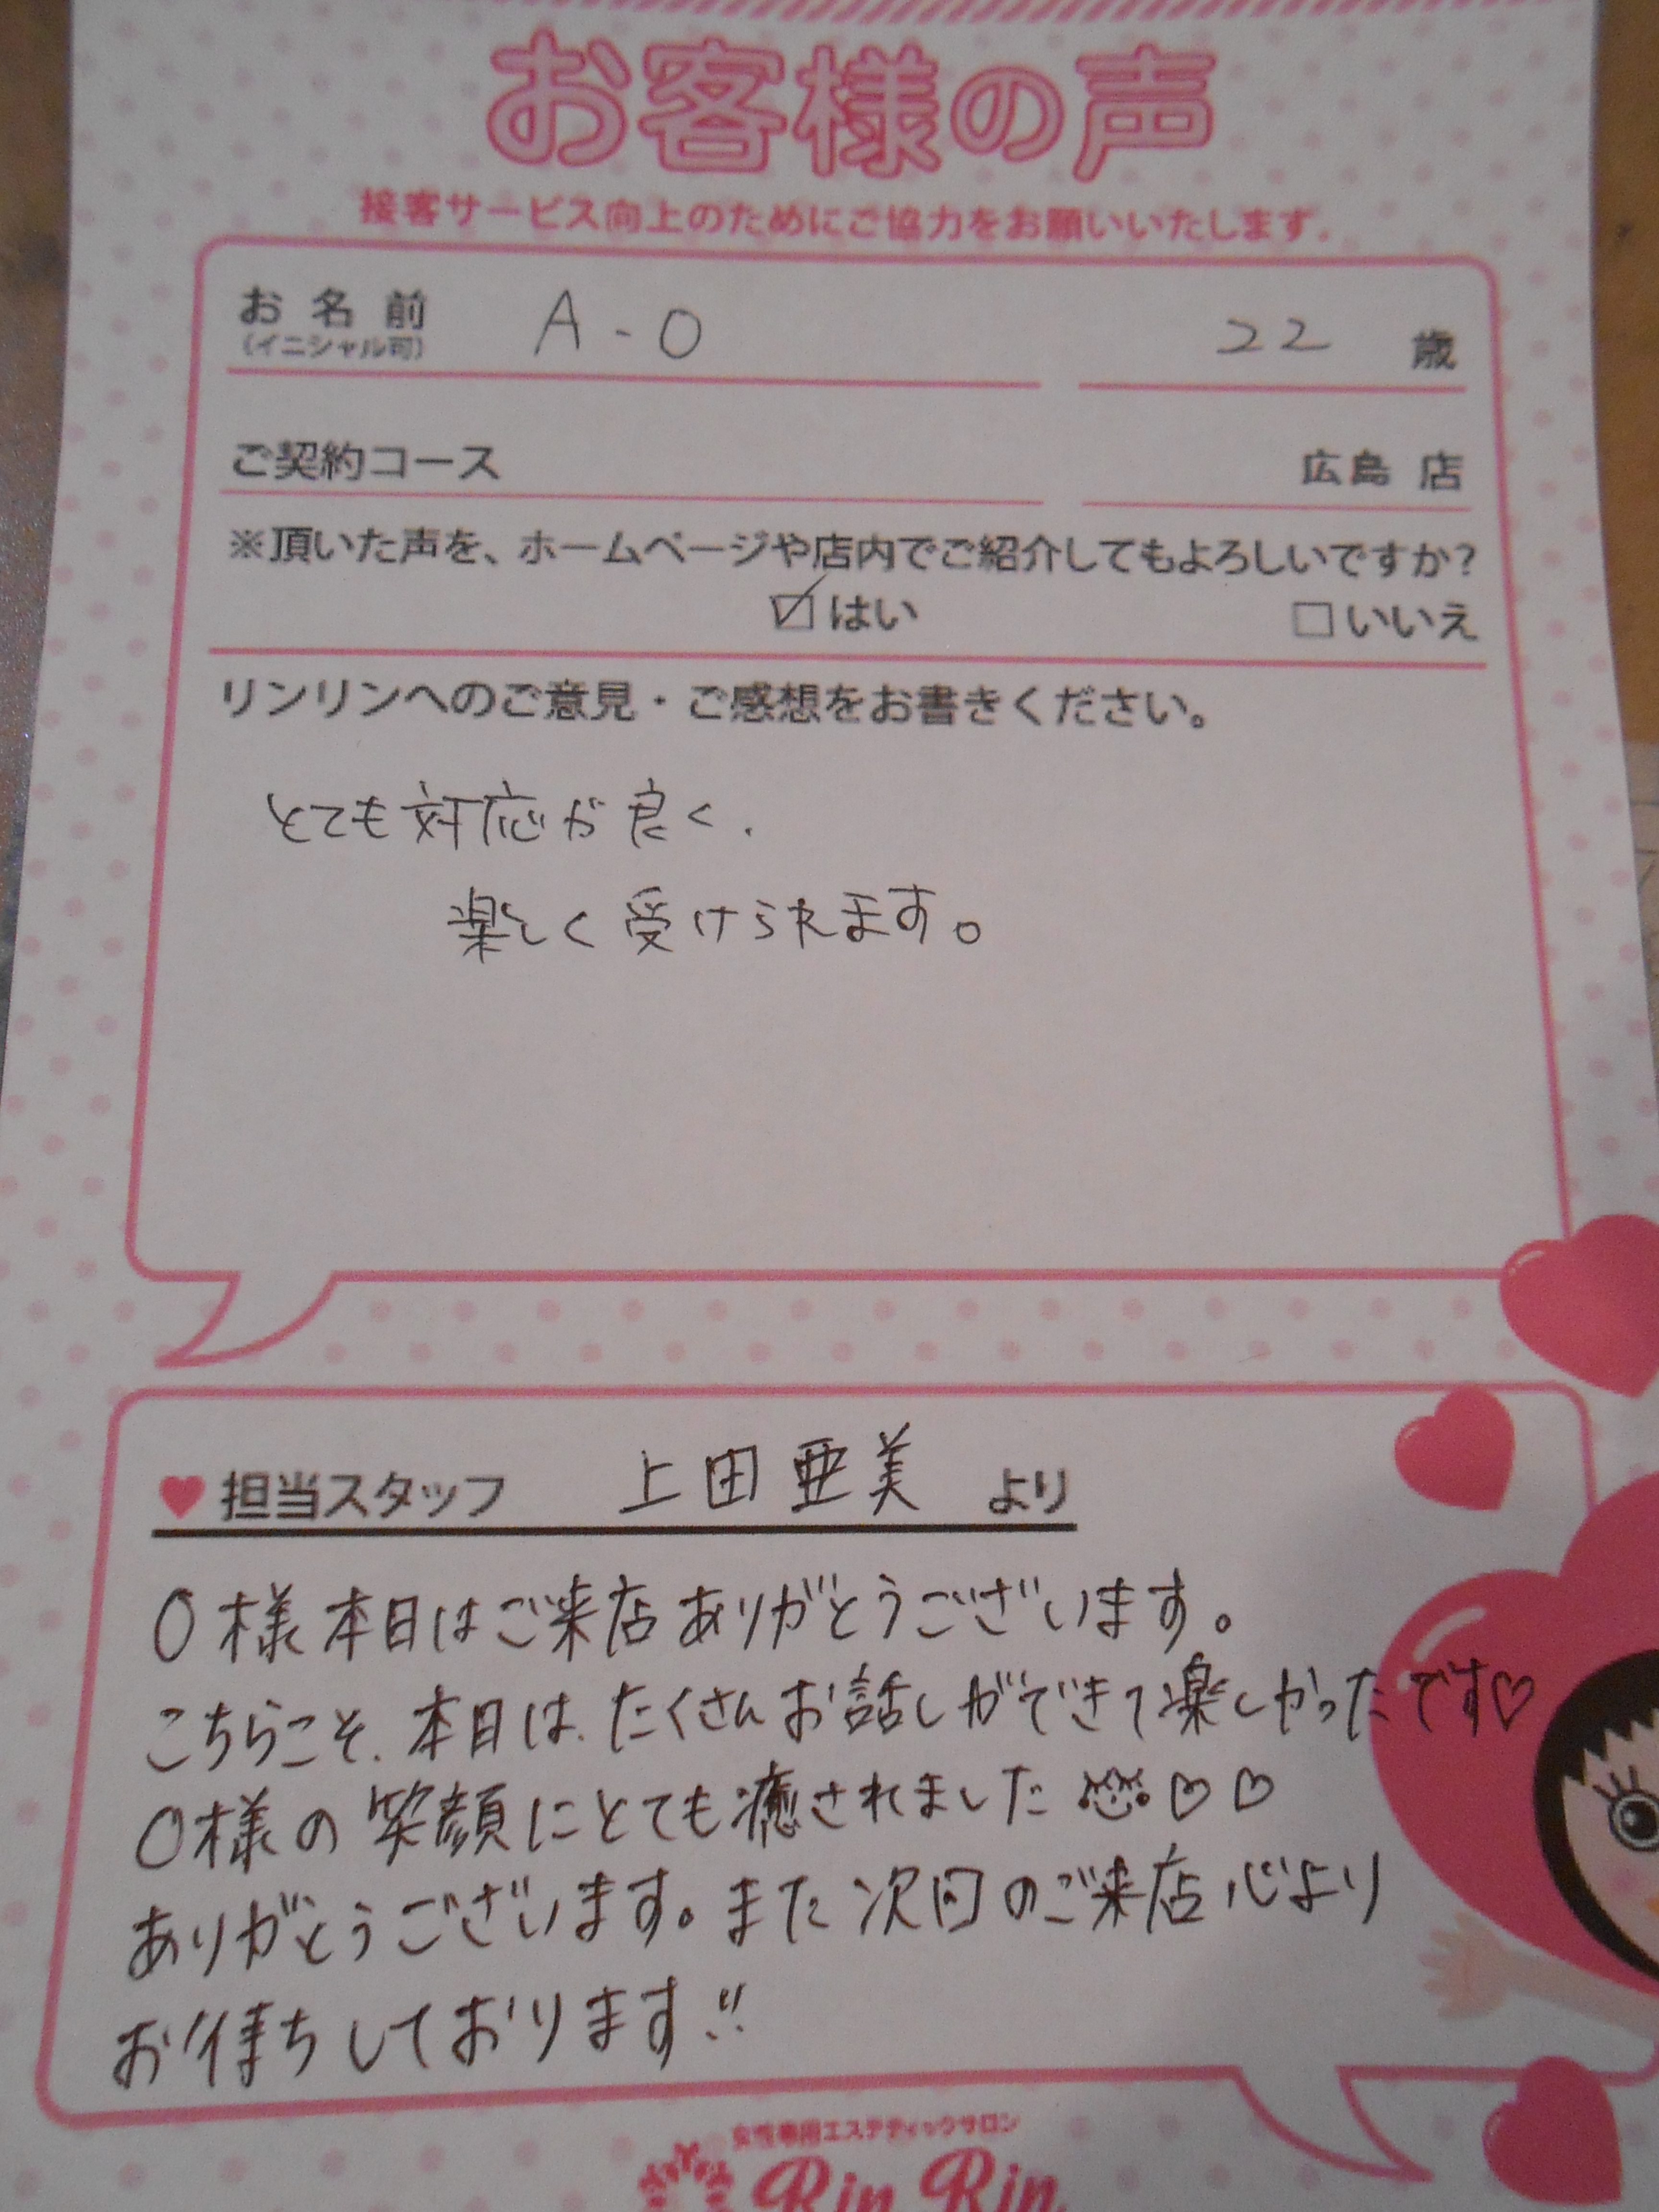 お客様の声
接客サービス向上のためにご協力をお願いいたします.
お名前 A-O 22 歳
(イニシャル可)
ご契約コース 広島 店
※頂いた声を、ホームページや店内でご紹介してもよろしいですか?
☑はい □いいえ
リンリンへのご意見・ご感想をお書きください。
とても対応が良く、
楽しく受けられます。
♥担当スタッフ 上田亜美 より
O様本日はご来店ありがとうございます。
こちらこそ、本日は、たくさんお話しができて楽しかったです♡
O様の笑顔にとても癒されました♡♡
ありがとうございます。また次回のご来店心より
お待ちしております!!
女性専用エステティックサロン
Rin Rin